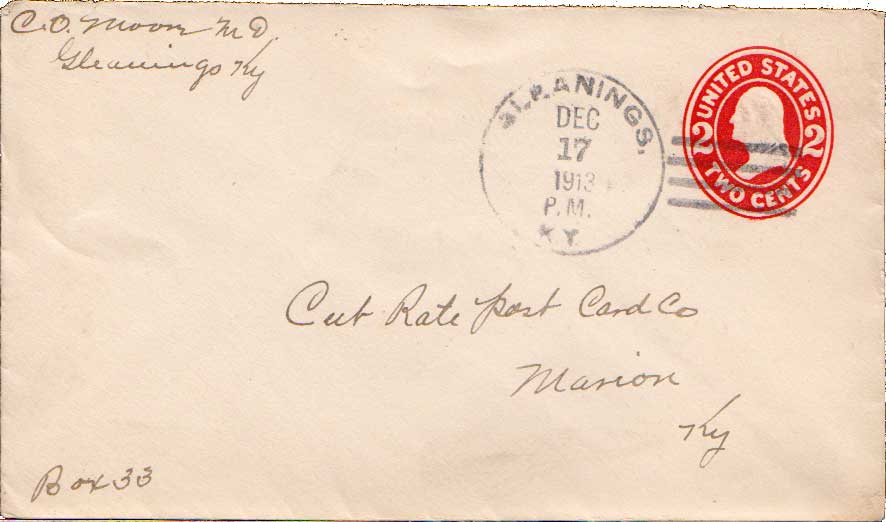 C. O. Moore M D.
Gleanings Ky
GLEANINGS.
DEC
17
1913
P.M.
KY.
UNITED STATES
2 2
TWO CENTS
Cut Rate Post Card Co
Marion
Ky
Box 33